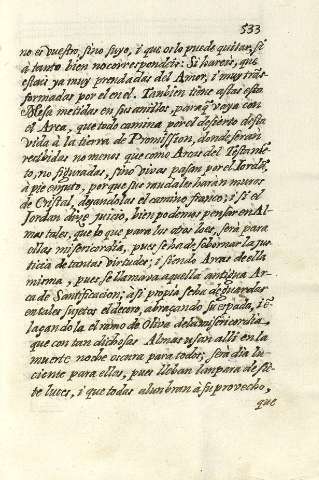 533
no es vuestro, sino suyo, i que os lo puede quitar, si
â tanto bien no correspondeis: Si hareis, que
estais ya muy prendadas del Amor, i muy trãs-
formadas por el en el. Tanbien tiene astas esta
Mesa metidas en sus anillos, paraq̃ vaya con
el Arca, que todo camina por el desierto desta
vida â la tierra de Promission, donde seran
recibidas no menos que como Arcas del Testamẽ-
to, no figuradas, sino vivas pasan por el Jordã,
â pie enjuto, por que sus raudales harân muros
de Cristal, dejandolas el camino franco; i si el
Jordan dize juicio, bien podemos pensar en Al-
mas tales, que lo que para los otros es, serà para
ellas misericordia, pues se ha de sobornar la jus-
ticia de tantas virtudes; i siendo Arcas de ella
misma, pues se llamava aquella antigua Ar-
ca de Santificacion; âsi propia se ha de guardar
en tales sujetos el decoro, abraçando su espada, i
lagandola el ramo de Oliva de la misericordia,
que con tan dichosas Almas usan alli en la
muerte noche oscura para todos; serà dia lu-
ciente para ellas, pues lleban lampara de sie-
te luces, i que todas alunbran â su provecho,
que